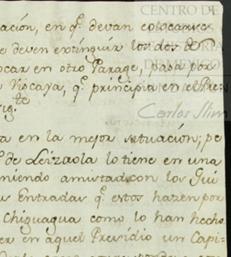 CENTRO DE
ación, en q.^e devan colocarse
e deven extinguir los dos de
ocar en otro Parage, pasa por
Vizcaya, q.^e principia en el Pre
te
a en la mejor situación; pe
l de Leizaola lo tiene en una
niendo amistad con los
us Entradas q.^e estos hazen por
Chiguagua como lo han hecho
er en aquel Presidio un Capi-
Carlos Slim